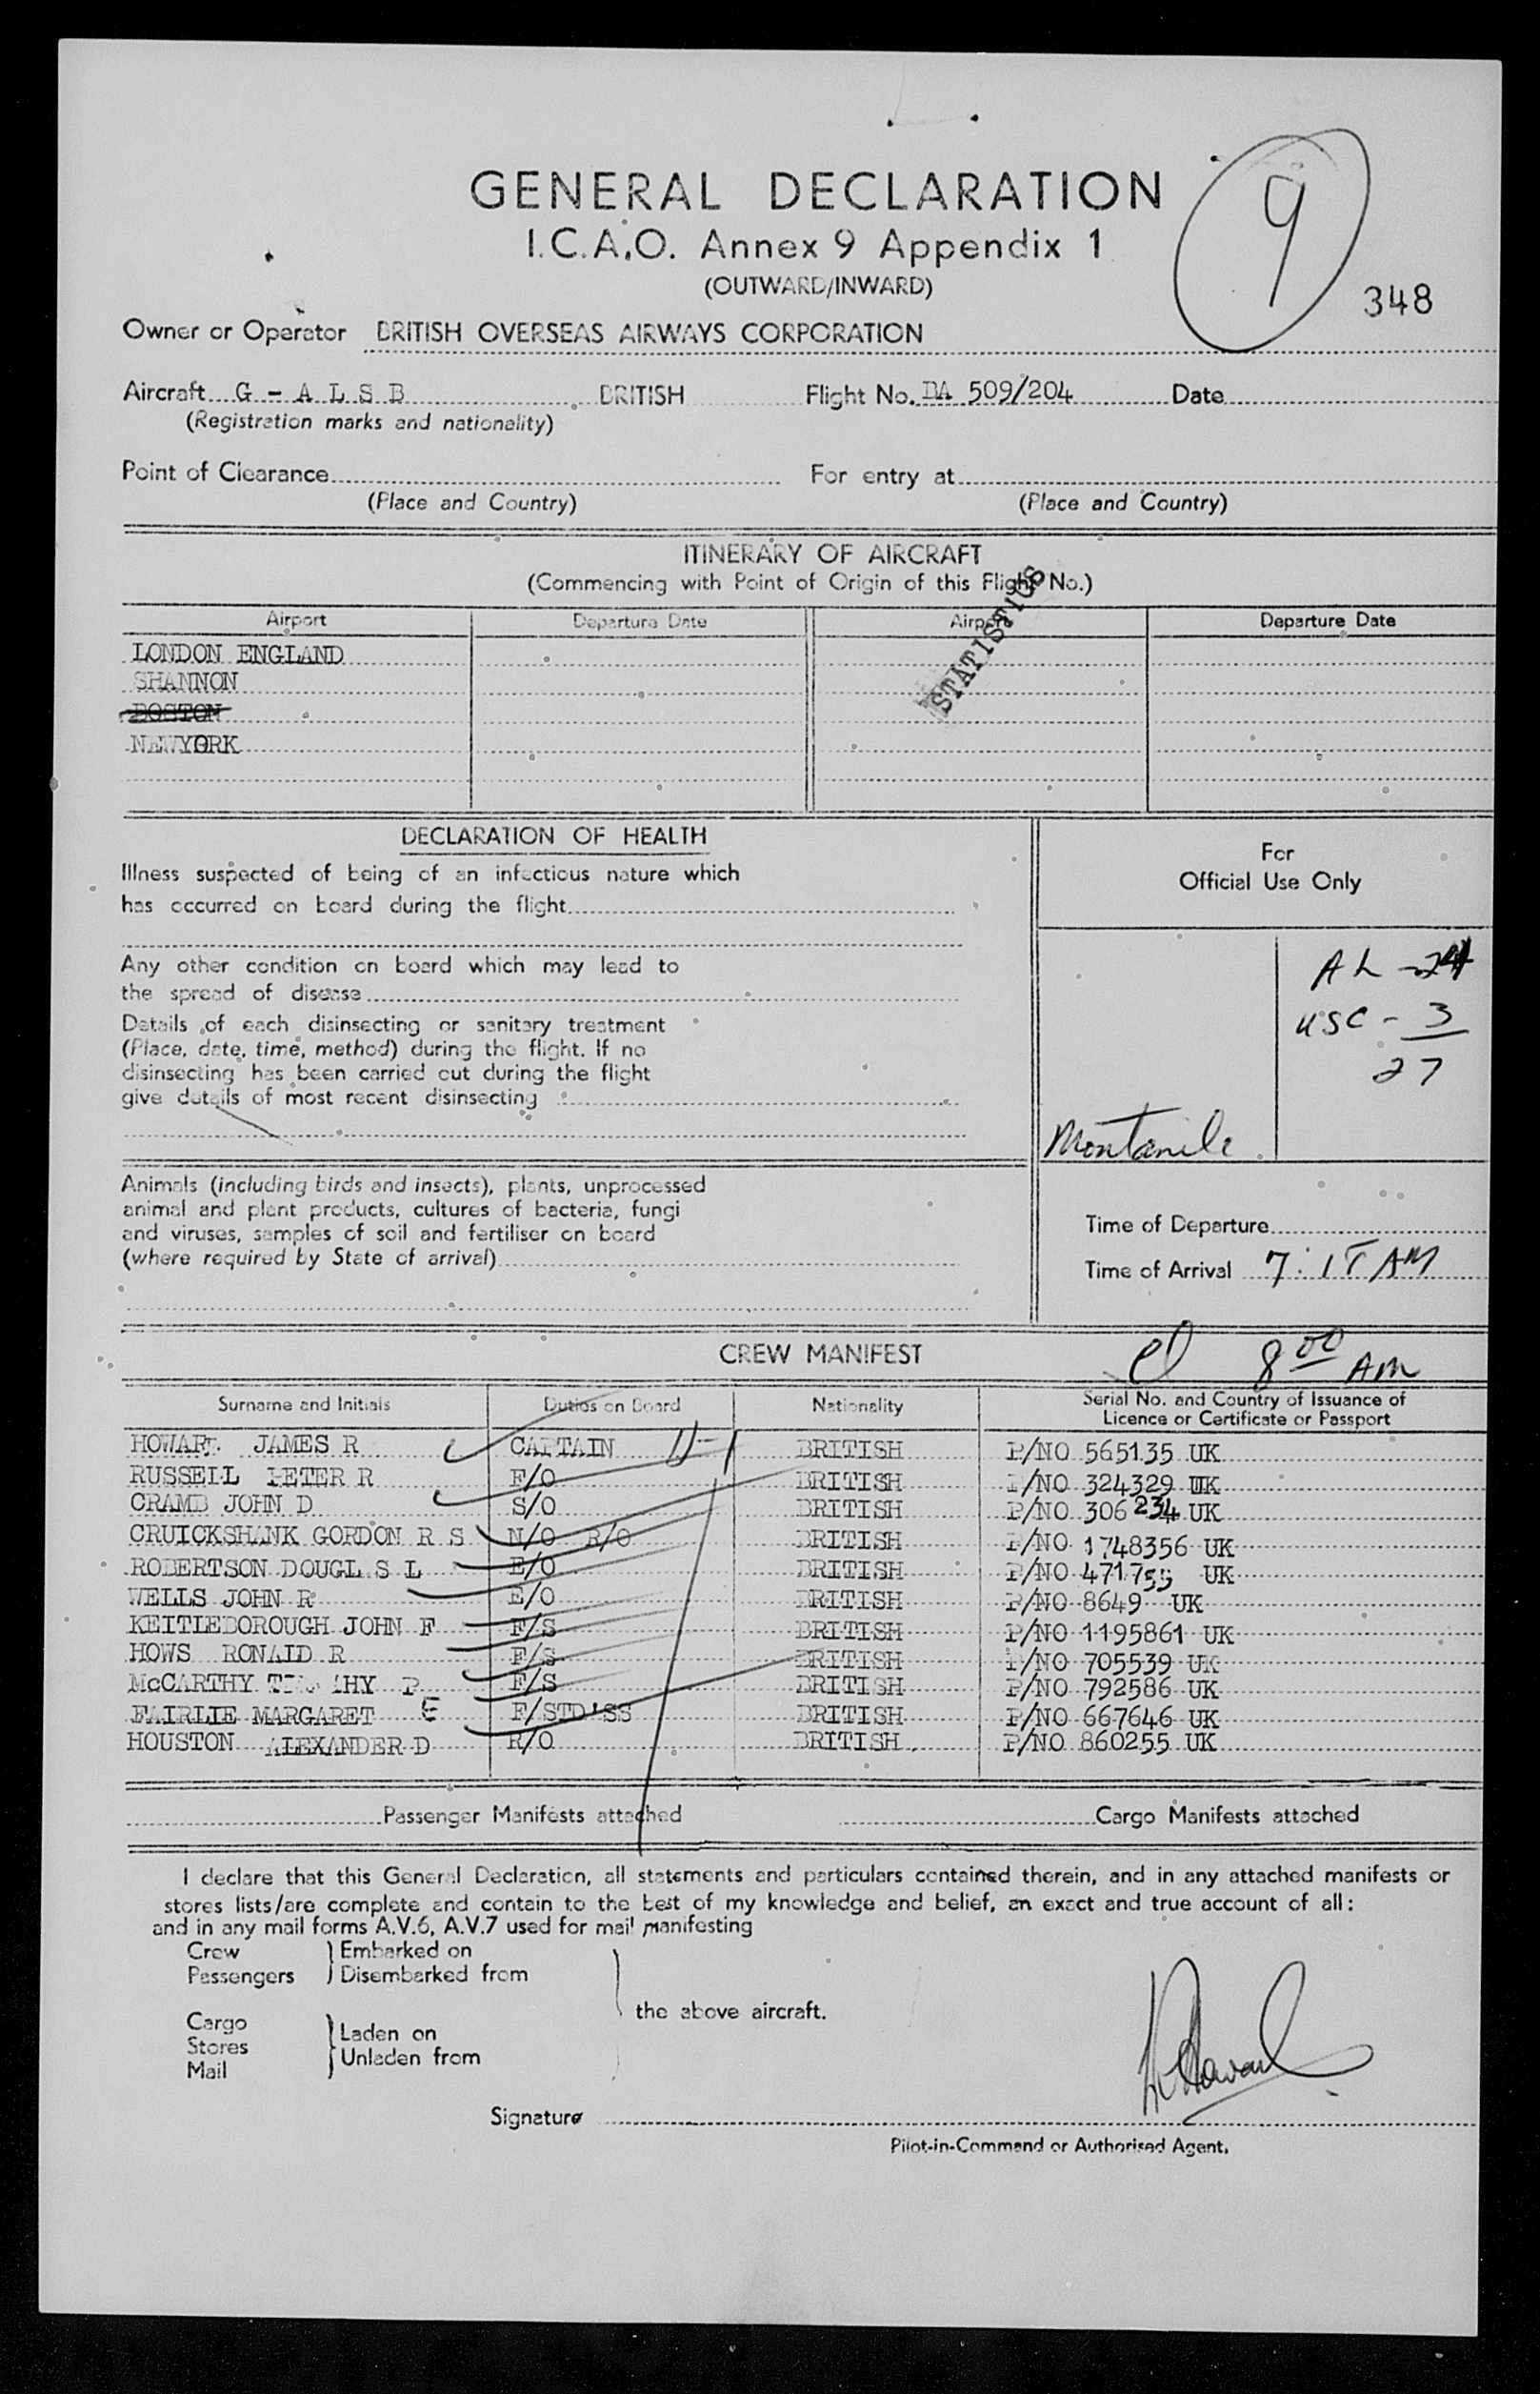 GENERAL DECLARATION
9
I.C.A.O. Annex 9 Appendix 1
(OUTWARD/INWARD)
348
Owner or Operator BRITISH OVERSEAS AIRWAYS CORPORATION
Aircraft G - A L S B BRITISH Flight No. BA 509/204 Date
(Registration marks and nationality)
Point of Clearance For entry at
(Place and Country) (Place and Country)
ITINERARY OF AIRCRAFT
(Commencing with Point of Origin of this Flight No.)
STATISTICS
Airport Departure Date Airport Departure Date
LONDON ENGLAND
SHANNON
BOSTON
NEWYORK
DECLARATION OF HEALTH
Illness suspected of being of an infectious nature which
has occurred on board during the flight
Any other condition on board which may lead to
the spread of disease
Details of each disinsecting or sanitary treatment
(Place, date, time, method) during the flight. If no
disinsecting has been carried out during the flight
give details of most recent disinsecting
Animals (including birds and insects), plants, unprocessed
animal and plant products, cultures of bacteria, fungi
and viruses, samples of soil and fertiliser on board
(where required by State of arrival)
For
Official Use Only
AL - 24
USC - 3
27
Time of Departure
Time of Arrival 7:15 AM
CREW MANIFEST
8 00 AM
Surname and Initials Duties on Board Nationality Serial No. and Country of Issuance of
Licence or Certificate or Passport
HOWARD JAMES R CAPTAIN BRITISH P/NO 565135 UK
RUSSELL PETER R F/O BRITISH P/NO 324329 UK
CRAMB JOHN D S/O BRITISH P/NO 306234 UK
CRUICKSHANK GORDON R S N/O R/O BRITISH P/NO 1748356 UK
ROBERTSON DOUGLAS L E/O BRITISH P/NO 471755 UK
WELLS JOHN R E/O BRITISH P/NO 8649 UK
KEITLEBOROUGH JOHN F F/S BRITISH P/NO 1195861 UK
HOWS RONALD R F/S BRITISH P/NO 705539 UK
McCARTHY TIMOTHY P F/S BRITISH P/NO 792586 UK
FAIRLIE MARGARET E F/STD'SS BRITISH P/NO 667646 UK
HOUSTON ALEXANDER D R/O BRITISH P/NO 860255 UK
Passenger Manifests attached Cargo Manifests attached
I declare that this General Declaration, all statements and particulars contained therein, and in any attached manifests or
stores lists/are complete and contain to the best of my knowledge and belief, an exact and true account of all:
and in any mail forms A.V.6, A.V.7 used for mail manifesting
Crew Embarked on
Passengers Disembarked from
the above aircraft.
Cargo
Stores Laden on
Mail Unladen from
Signature
Pilot-in-Command or Authorised Agent.